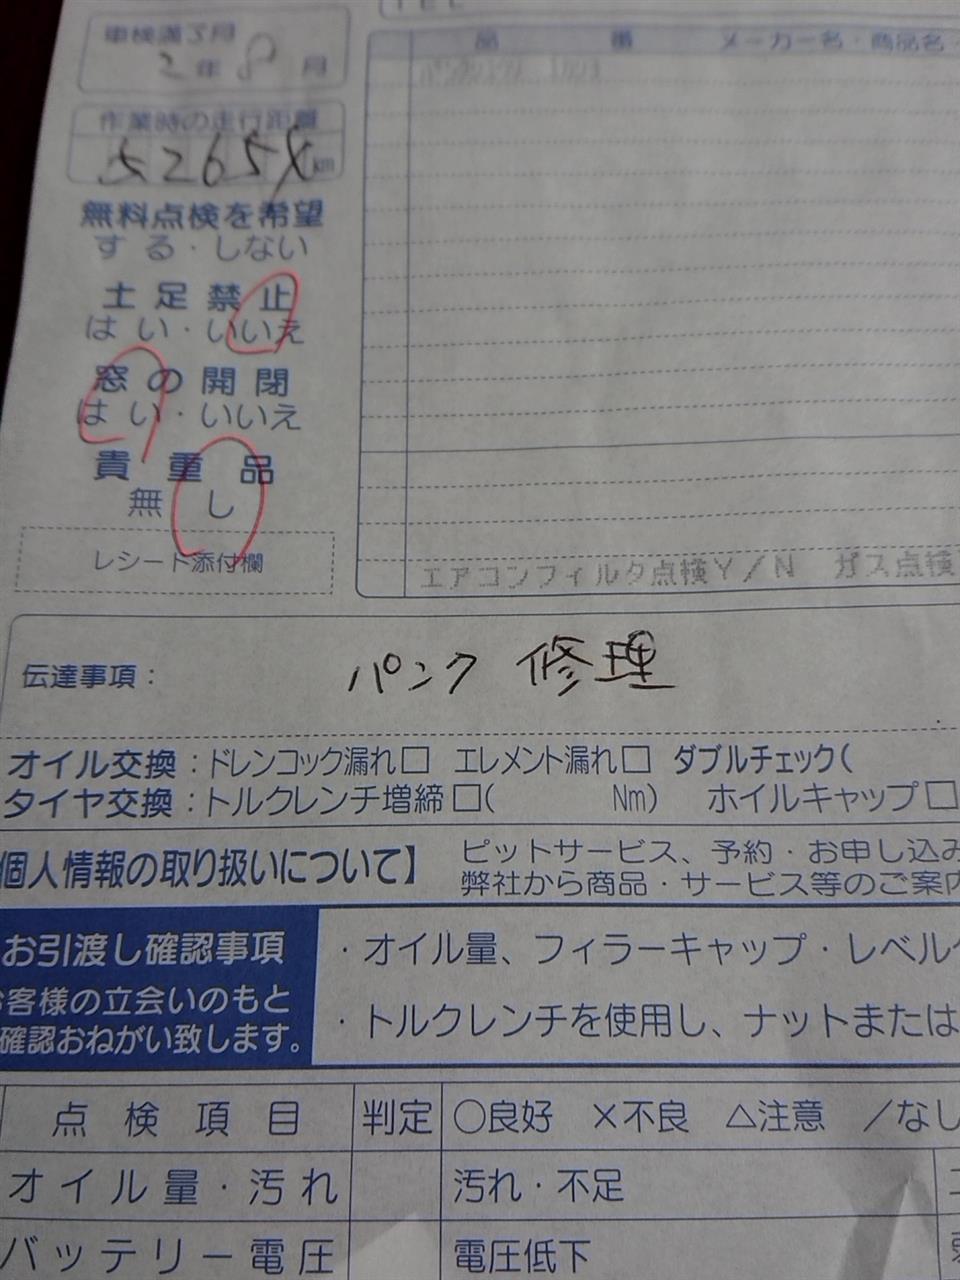 TEL
車検満了月
2年8月
作業時の走行距離
km
無料点検を希望
する・しない
土足禁止
はい・いいえ
窓の開閉
はい・いいえ
貴重品
無し
レシート添付欄
品番 メーカー名・商品名・
エアコンフィルタ点検Y/N ガス点検
伝達事項: パンク 修理
オイル交換:ドレンコック漏れ□ エレメント漏れ□ ダブルチェック(
タイヤ交換:トルクレンチ増締□( Nm) ホイルキャップ□
個人情報の取り扱いについて】
ピットサービス、予約・お申し込み
弊社から商品・サービス等のご案内
お引渡し確認事項
お客様の立会いのもと
確認おねがい致します。
・オイル量、フィラーキャップ・レベル
・トルクレンチを使用し、ナットまたは
点検項目 判定 ○良好 ×不良 △注意 /なし
オイル量・汚れ 汚れ・不足
バッテリー電圧 電圧低下